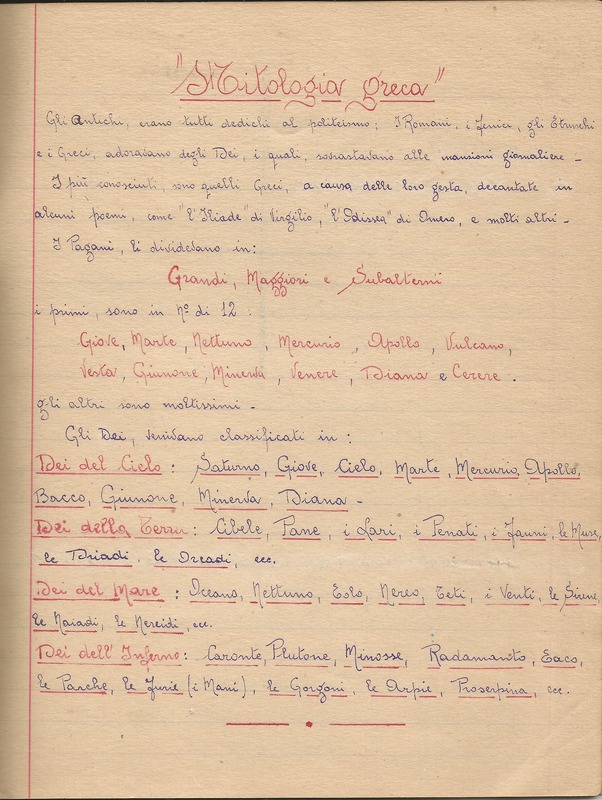 "Mitologia greca"
Gli Antichi, erano tutti dedichi al politeismo; I Romani, i Fenici, gli Etruschi
e i Greci, adoravano degli Dei, i quali, sovrastavano alle mansioni giornaliere -
I più conosciuti, sono quelli Greci, a causa delle loro gesta, decantate in
alcuni poemi, come "l'Iliade" di Virgilio, "l'Odissea" di Omero, e molti altri -
I Pagani, li dividevano in:
Grandi, Maggiori e Subalterni
i primi, sono in nº di 12:
Giove, Marte, Nettuno, Mercurio, Apollo, Vulcano,
Vesta, Giunone, Minerva, Venere, Diana e Cerere.
gli altri sono moltissimi -
Gli Dei, venivano classificati in:
Dei del Cielo: Saturno, Giove, Cielo, Marte, Mercurio, Apollo,
Bacco, Giunone, Minerva, Diana -
Dei della Terra: Cibele, Pane, i Lari, i Penati, i Fauni, le Muse,
le Driadi, le Oreadi, ecc.
Dei del Mare: Oceano, Nettuno, Eolo, Nereo, Teti, i Venti, le Sirene,
le Naiadi, le Nereidi, ecc.
Dei dell'Inferno: Caronte, Plutone, Minosse, Radamanto, Eaco,
le Parche, le Furie (i Mani), le Gorgoni, le Arpie, Proserpina, ecc.